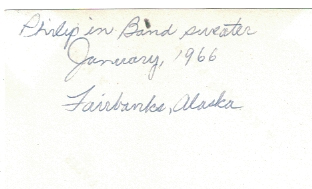 Philip in Band sweater
January, 1966
Fairbanks, Alaska